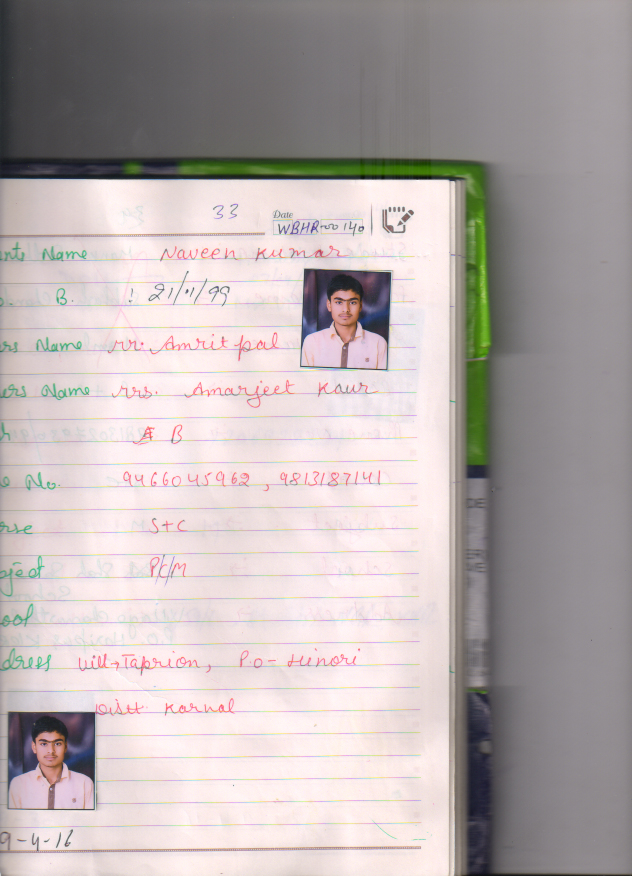 33
Date
WBHR 00 140
ents Name Naveen Kumar
B. : 21/11/99
ers Name Mr. Amrit pal
ers Name Mrs. Amarjeet Kaur
B
e No. 9466045962, 9813187141
rse S+C
bject P/C/M
ool
dress Vill→Taprion, P.o-
Distt Karnal
9-4-16